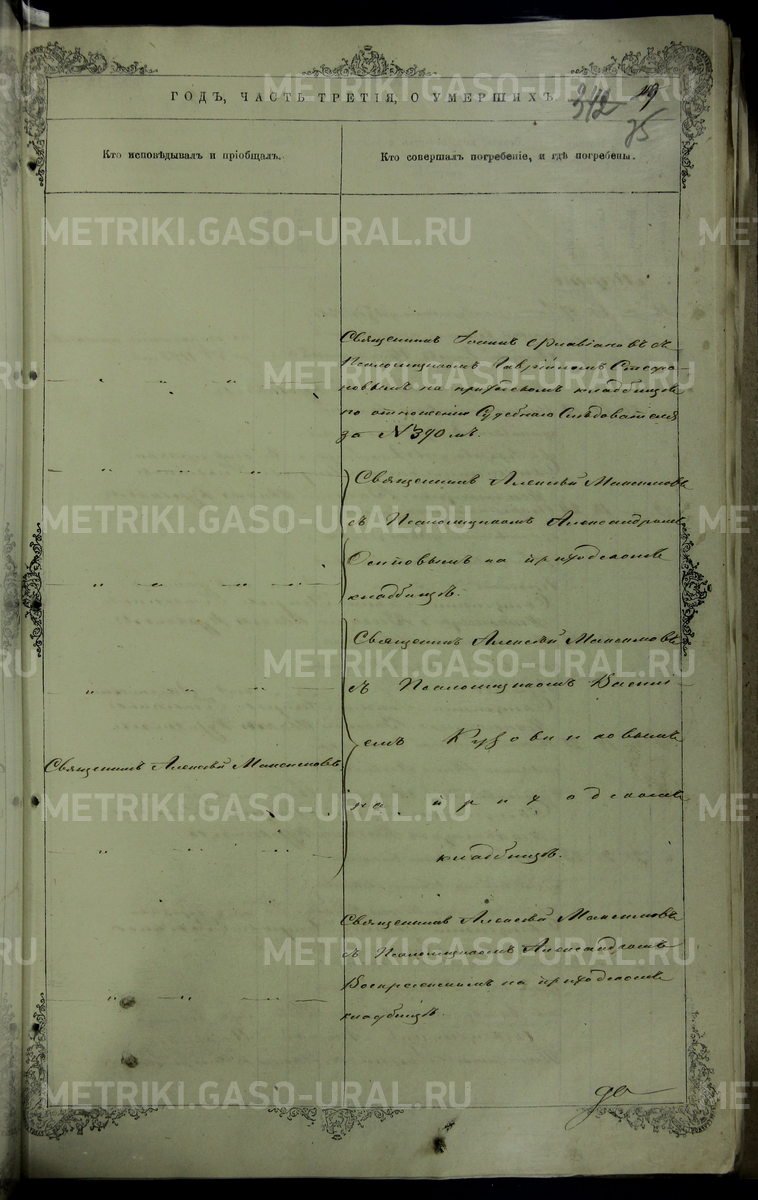 ГОДЪ, ЧАСТЬ ТРЕТІЯ, О УМЕРШИХЪ.
342
75
Кто исповѣдывалъ и пріобщалъ.
Кто совершалъ погребеніе, и гдѣ погребены.
Священникъ Іоаннъ Флавіановъ съ
Псаломщикомъ Гавріиломъ Стефа-
новымъ на приходскомъ кладбищѣ
по отношенію Судебнаго Слѣдователя
за № 390 мъ.
Священникъ Алексѣй Максимовъ
съ Псаломщикомъ Александромъ
на приходскомъ
кладбищѣ.
Священникъ Алексѣй Максимовъ
съ Псаломщикомъ Васили-
емъ Кузовниковымъ
Священникъ Алексѣй Максимовъ
на приходскомъ
кладбищѣ.
Священникъ Алексѣй Максимовъ
съ Псаломщикомъ Александромъ
Воскресенскимъ на приходскомъ
кладбищѣ.
METRIKI.GASO-URAL.RU